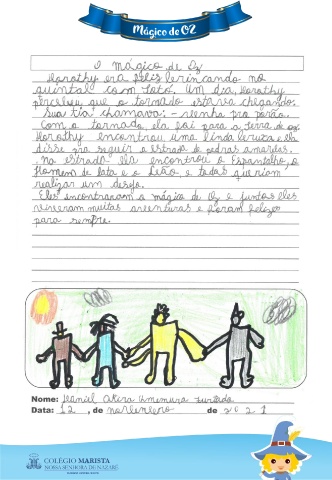 Mágico de OZ
O mágico de Oz
Dorothy era feliz brincando no
quintal com Totó. Um dia, Dorothy
percebeu que o tornado estava chegando.
Sua tia chamava: - venha pro porão.
Com o tornado, ela foi para a terra de oz.
Dorothy encontrou uma linda bruxa e ela
disse pra seguir a estrada de pedras amarelas.
na estrada ela encontrou o Espantalho, o
Homem de lata e o Leão e todos queriam
realizar um desejo.
Eles encontraram o mágico de Oz e juntos eles
viveram muitas aventuras e foram felizes
para sempre.
Nome: Daniel Akira Umemura Furtado
Data: 12, de novembro de 2021
COLÉGIO MARISTA
NOSSA SENHORA DE NAZARÉ